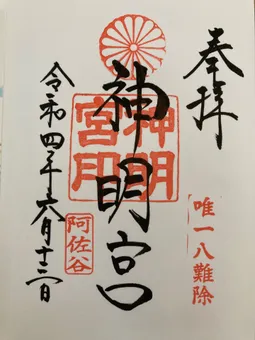 奉拝
唯一八難除
神明宮
神明宮印
阿佐谷
令和四年六月十二日